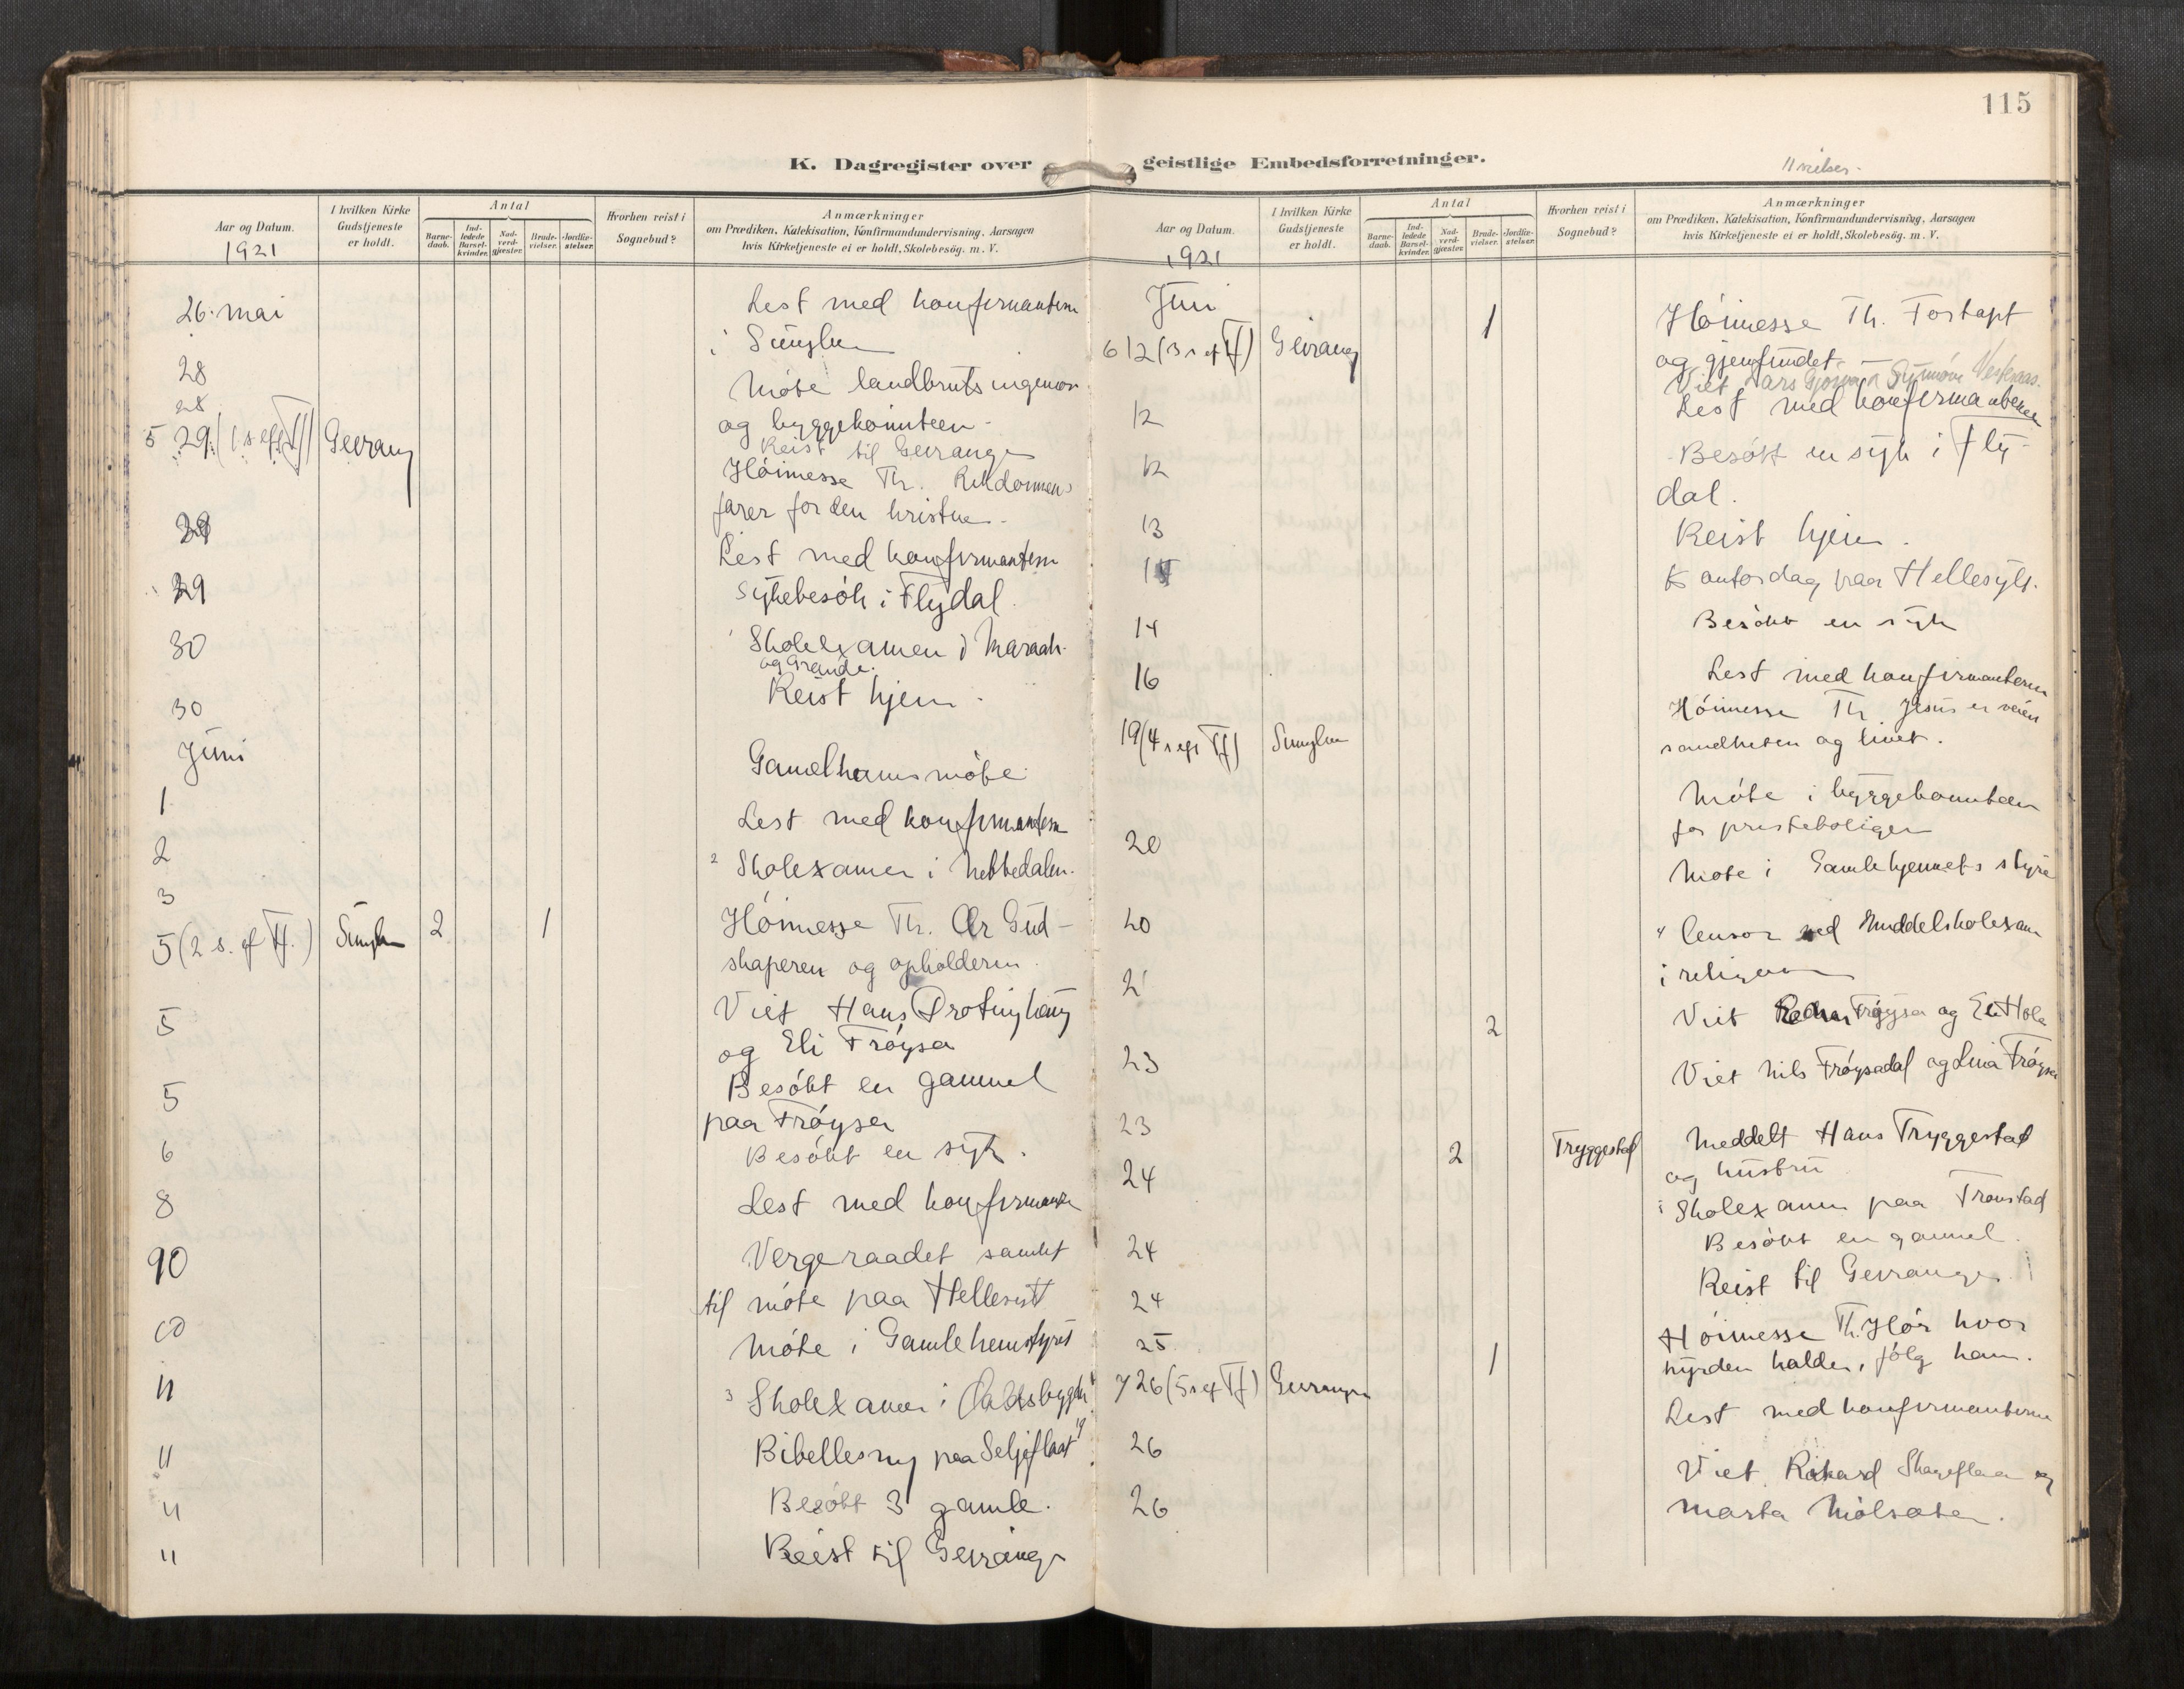 115
K. Dagregister over
geistlige Embedsforretninger.
Aar og Datum.
1921
I hvilken Kirke
Gudstjeneste
er holdt.
Antal
Barne-
daab.
Ind-
ledede
Barsel-
kvinder.
Nad-
verd-
gjæster.
Brude-
vielser.
Jordfæ-
stelser.
Hvorhen reist i
Sognebud?
Anmærkninger
om Prædiken, Katekisation, Konfirmandundervisning, Aarsagen
hvis Kirketjeneste ei er holdt, Skolebesøg. m. V.
26. mai
Lest med konfirmantern
i Sunylven
28
Møte landbruksingeniør
og byggekomiteen
28
Reist til Geiranger
5 29. (1 s. eft Tf) Geirang
Høimesse Th. Rikdommens
farer for den kristne
29
Lest med konfirmantern
29
Sykebesøk i Flydal.
30
Skolexamen i Maraak
og Grande.
30
Reist hjem
Juni
1
Gamelheimsmøte
2
Lest med konfirmantern
3
2 Skolexamen i Nebbedalen.
5 (2 s. ef Tf.) Sunylv 2 1
Høimesse Th. Er Gud
skaperen og opholderen
5
Viet Hans Drotninghaug
og Eli Frøysa
5
Besøkt en gammel
paa Frøysa
6
Besøkt en syk.
8
Lest med konfirmant
Vergeraadet samlet
til møte paa Hellesylt
10
Møte i Gamlehemstyret
11
3 Skolexamen i
11
Bibellesning paa Seljeflaat
11
Besøkt 3 gamle.
11
Reist til Geiranger
Aar og Datum.
1921
I hvilken Kirke
Gudstjeneste
er holdt.
Antal
Barne-
daab.
Ind-
ledede
Barsel-
kvinder.
Nad-
verd-
gjæster.
Brude-
vielser.
Jordfæ-
stelser.
Hvorhen reist i
Sognebud?
Anmærkninger
om Prædiken, Katekisation, Konfirmandundervisning, Aarsagen
hvis Kirketjeneste ei er holdt, Skolebesøg. m. V.
Juni
6 12 (3 s ef Tf) Geirang 1
Høimesse Th. Fortapt
og gjenfundet
Viet Lars
12
Lest med konfirmantene
12
Besøkt en syk i Fly-
dal.
13
Reist hjem.
Kontordag paa Hellesylt.
14
Besøkt en syk
16
Lest med konfirmantern
19 (4 s ef Tf) Sunylven
Høimesse Th. Jesus er veien
sandheten og livet.
20
Møte i byggekomiteen
for presteboligen
20
Møte i Gamlehjemmets styre
21
4 Censor ved Middelskolexam
i religion
23 2
Viet Frøysa og Eli Hole
23
Viet Nils Frøysadal og Lina Frøysa
24 2 Tryggestad
Meddelt Hans Tryggestad
og hustru
24
Skolexamen paa Tronstad
24
Besøkt en gammel.
25
Reist til Geiranger.
7 26 (5 s ef Tf) Geiranger 1
Høimesse Th. Hør hvor
hyrden kalder, følg ham.
26
Lest med konfirmanterne
26
Viet Rikard Skageflaa og
Marta Mølsæter.